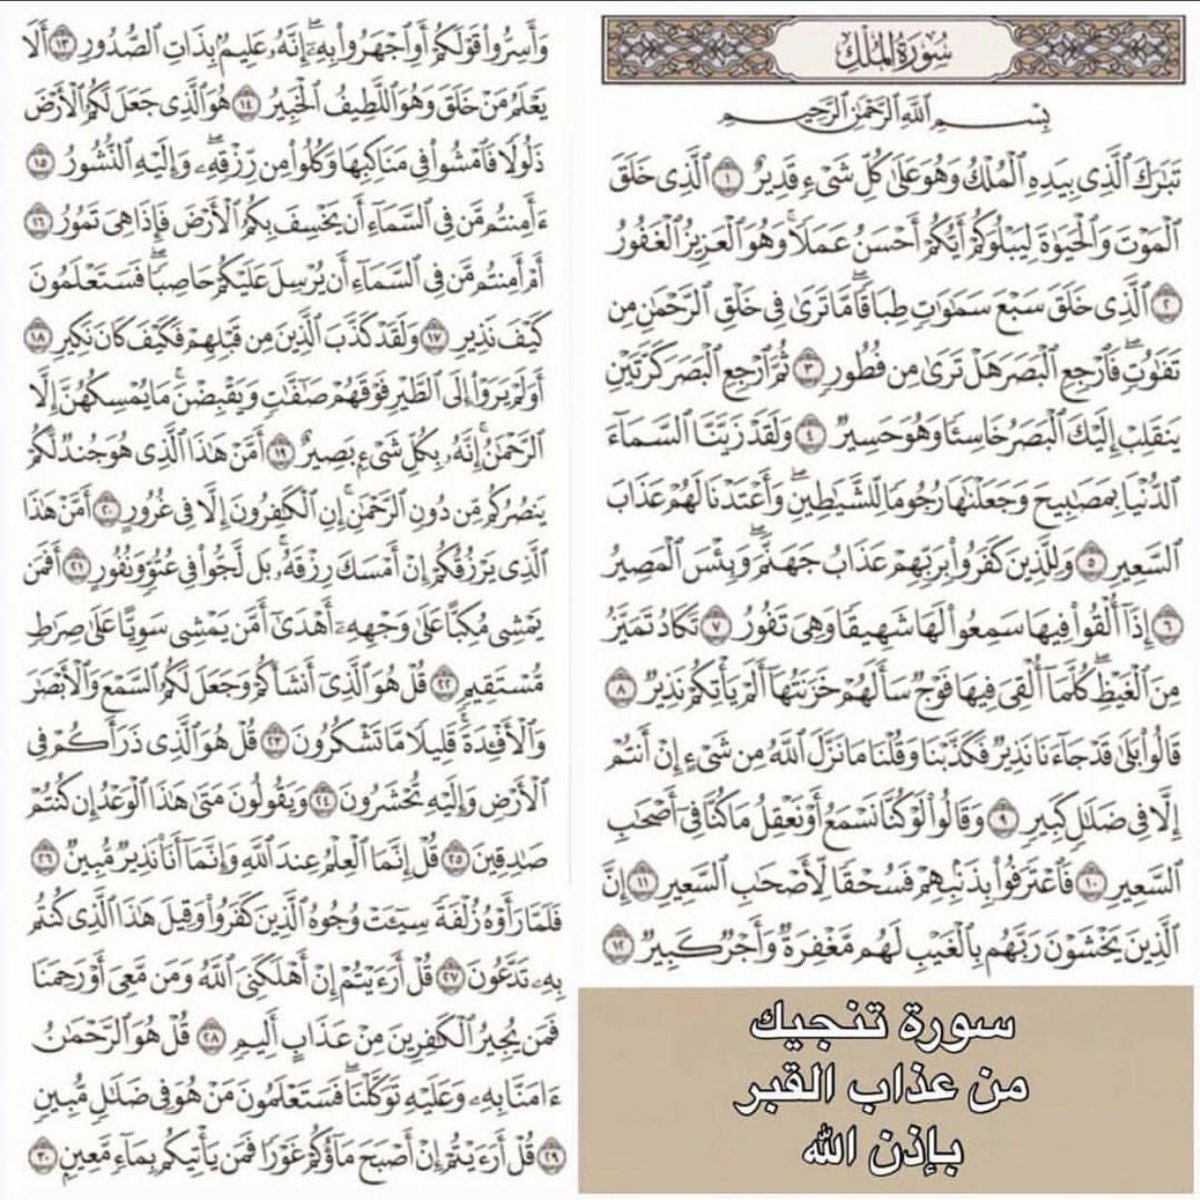 سُورَةُ المُلْكِ
بِسْمِ ٱللَّهِ ٱلرَّحْمَٰنِ ٱلرَّحِيمِ
تَبَٰرَكَ ٱلَّذِى بِيَدِهِ ٱلْمُلْكُ وَهُوَ عَلَىٰ كُلِّ شَىْءٍ قَدِيرٌ ١ ٱلَّذِى خَلَقَ
ٱلْمَوْتَ وَٱلْحَيَوٰةَ لِيَبْلُوَكُمْ أَيُّكُمْ أَحْسَنُ عَمَلًا ۚ وَهُوَ ٱلْعَزِيزُ ٱلْغَفُورُ
٢ ٱلَّذِى خَلَقَ سَبْعَ سَمَٰوَٰتٍ طِبَاقًا ۖ مَّا تَرَىٰ فِى خَلْقِ ٱلرَّحْمَٰنِ مِن
تَفَٰوُتٍ ۖ فَٱرْجِعِ ٱلْبَصَرَ هَلْ تَرَىٰ مِن فُطُورٍ ٣ ثُمَّ ٱرْجِعِ ٱلْبَصَرَ كَرَّتَيْنِ
يَنقَلِبْ إِلَيْكَ ٱلْبَصَرُ خَاسِئًا وَهُوَ حَسِيرٌ ٤ وَلَقَدْ زَيَّنَّا ٱلسَّمَآءَ
ٱلدُّنْيَا بِمَصَٰبِيحَ وَجَعَلْنَٰهَا رُجُومًا لِّلشَّيَٰطِينِ ۖ وَأَعْتَدْنَا لَهُمْ عَذَابَ
ٱلسَّعِيرِ ٥ وَلِلَّذِينَ كَفَرُوا۟ بِرَبِّهِمْ عَذَابُ جَهَنَّمَ ۖ وَبِئْسَ ٱلْمَصِيرُ
٦ إِذَآ أُلْقُوا۟ فِيهَا سَمِعُوا۟ لَهَا شَهِيقًا وَهِىَ تَفُورُ ٧ تَكَادُ تَمَيَّزُ
مِنَ ٱلْغَيْظِ ۖ كُلَّمَآ أُلْقِىَ فِيهَا فَوْجٌ سَأَلَهُمْ خَزَنَتُهَآ أَلَمْ يَأْتِكُمْ نَذِيرٌ ٨
قَالُوا۟ بَلَىٰ قَدْ جَآءَنَا نَذِيرٌ فَكَذَّبْنَا وَقُلْنَا مَا نَزَّلَ ٱللَّهُ مِن شَىْءٍ إِنْ أَنتُمْ
إِلَّا فِى ضَلَٰلٍ كَبِيرٍ ٩ وَقَالُوا۟ لَوْ كُنَّا نَسْمَعُ أَوْ نَعْقِلُ مَا كُنَّا فِىٓ أَصْحَٰبِ
ٱلسَّعِيرِ ١٠ فَٱعْتَرَفُوا۟ بِذَنۢبِهِمْ فَسُحْقًا لِّأَصْحَٰبِ ٱلسَّعِيرِ ١١ إِنَّ
ٱلَّذِينَ يَخْشَوْنَ رَبَّهُم بِٱلْغَيْبِ لَهُم مَّغْفِرَةٌ وَأَجْرٌ كَبِيرٌ ١٢
وَأَسِرُّوا۟ قَوْلَكُمْ أَوِ ٱجْهَرُوا۟ بِهِۦٓ ۖ إِنَّهُۥ عَلِيمٌۢ بِذَاتِ ٱلصُّدُورِ ١٣ أَلَا
يَعْلَمُ مَنْ خَلَقَ وَهُوَ ٱللَّطِيفُ ٱلْخَبِيرُ ١٤ هُوَ ٱلَّذِى جَعَلَ لَكُمُ ٱلْأَرْضَ
ذَلُولًا فَٱمْشُوا۟ فِى مَنَاكِبِهَا وَكُلُوا۟ مِن رِّزْقِهِۦ ۖ وَإِلَيْهِ ٱلنُّشُورُ ١٥
ءَأَمِنتُم مَّن فِى ٱلسَّمَآءِ أَن يَخْسِفَ بِكُمُ ٱلْأَرْضَ فَإِذَا هِىَ تَمُورُ ١٦
أَمْ أَمِنتُم مَّن فِى ٱلسَّمَآءِ أَن يُرْسِلَ عَلَيْكُمْ حَاصِبًا ۖ فَسَتَعْلَمُونَ
كَيْفَ نَذِيرِ ١٧ وَلَقَدْ كَذَّبَ ٱلَّذِينَ مِن قَبْلِهِمْ فَكَيْفَ كَانَ نَكِيرِ ١٨
أَوَلَمْ يَرَوْا۟ إِلَى ٱلطَّيْرِ فَوْقَهُمْ صَٰٓفَّٰتٍ وَيَقْبِضْنَ ۚ مَا يُمْسِكُهُنَّ إِلَّا
ٱلرَّحْمَٰنُ ۚ إِنَّهُۥ بِكُلِّ شَىْءٍۭ بَصِيرٌ ١٩ أَمَّنْ هَٰذَا ٱلَّذِى هُوَ جُندٌ لَّكُمْ
يَنصُرُكُم مِّن دُونِ ٱلرَّحْمَٰنِ ۚ إِنِ ٱلْكَٰفِرُونَ إِلَّا فِى غُرُورٍ ٢٠ أَمَّنْ هَٰذَا
ٱلَّذِى يَرْزُقُكُمْ إِنْ أَمْسَكَ رِزْقَهُۥ ۚ بَل لَّجُّوا۟ فِى عُتُوٍّ وَنُفُورٍ ٢١ أَفَمَن
يَمْشِى مُكِبًّا عَلَىٰ وَجْهِهِۦٓ أَهْدَىٰٓ أَمَّن يَمْشِى سَوِيًّا عَلَىٰ صِرَٰطٍ
مُّسْتَقِيمٍ ٢٢ قُلْ هُوَ ٱلَّذِىٓ أَنشَأَكُمْ وَجَعَلَ لَكُمُ ٱلسَّمْعَ وَٱلْأَبْصَٰرَ
وَٱلْأَفْـِٔدَةَ ۖ قَلِيلًا مَّا تَشْكُرُونَ ٢٣ قُلْ هُوَ ٱلَّذِى ذَرَأَكُمْ فِى
ٱلْأَرْضِ وَإِلَيْهِ تُحْشَرُونَ ٢٤ وَيَقُولُونَ مَتَىٰ هَٰذَا ٱلْوَعْدُ إِن كُنتُمْ
صَٰدِقِينَ ٢٥ قُلْ إِنَّمَا ٱلْعِلْمُ عِندَ ٱللَّهِ وَإِنَّمَآ أَنَا۠ نَذِيرٌ مُّبِينٌ ٢٦
فَلَمَّا رَأَوْهُ زُلْفَةً سِيٓـَٔتْ وُجُوهُ ٱلَّذِينَ كَفَرُوا۟ وَقِيلَ هَٰذَا ٱلَّذِى كُنتُم
بِهِۦ تَدَّعُونَ ٢٧ قُلْ أَرَءَيْتُمْ إِنْ أَهْلَكَنِىَ ٱللَّهُ وَمَن مَّعِىَ أَوْ رَحِمَنَا
فَمَن يُجِيرُ ٱلْكَٰفِرِينَ مِنْ عَذَابٍ أَلِيمٍ ٢٨ قُلْ هُوَ ٱلرَّحْمَٰنُ
ءَامَنَّا بِهِۦ وَعَلَيْهِ تَوَكَّلْنَا ۖ فَسَتَعْلَمُونَ مَنْ هُوَ فِى ضَلَٰلٍ مُّبِينٍ
٢٩ قُلْ أَرَءَيْتُمْ إِنْ أَصْبَحَ مَآؤُكُمْ غَوْرًا فَمَن يَأْتِيكُم بِمَآءٍ مَّعِينٍۭ ٣٠
سورة تنجيك
من عذاب القبر
بإذن الله